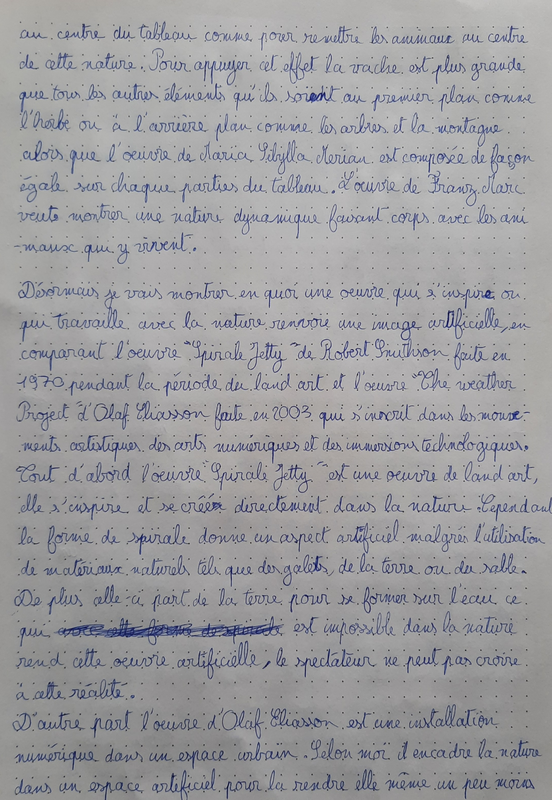 au centre du tableau comme pour remettre les animaux au centre
de cette nature. Pour appuyer cet effet la vache est plus grande
que tous les autres éléments qu'ils soient au premier plan comme
l'herbe ou à l'arrière plan comme les arbres et la montagne.
alors que l'oeuvre de Maria Sibylla Merian est composée de façon
égale sur chaque parties du tableau. L'oeuvre de Franz Marc
veut montrer une nature dynamique faisant corps avec les ani
-maux qui y vivent.
Désormais je vais montrer en quoi une oeuvre qui s'inspire ou
qui travaille avec la nature renvoie une image artificielle, en
comparant l'oeuvre "Spirale Jetty" de Robert Smithson faite en
1970 pendant la période du land art et l'oeuvre "The weather
Project" d'Olaf Eliasson faite en 2003 qui s'inscrit dans les mouve-
ments artistiques des arts numériques et des immersions technologiques.
Tout d'abord l'oeuvre "Spirale Jetty" est une oeuvre de land art,
elle s'inspire et se crée directement dans la nature. Cependant
la forme de spirale donne un aspect artificiel malgrés l'utilisation
de matériaux naturels tels que des galets, de la terre ou du sable.
De plus celle-ci part de la terre pour se former sur l'eau ce
qui est impossible dans la nature
rend cette oeuvre artificielle, le spectateur ne peut pas croire
à cette réalité.
D'autre part l'oeuvre d'Olaf Eliasson est une installation
numérique dans un espace urbain. Selon moi il encadre la nature
dans un espace artificiel pour la rendre elle même un peu moins